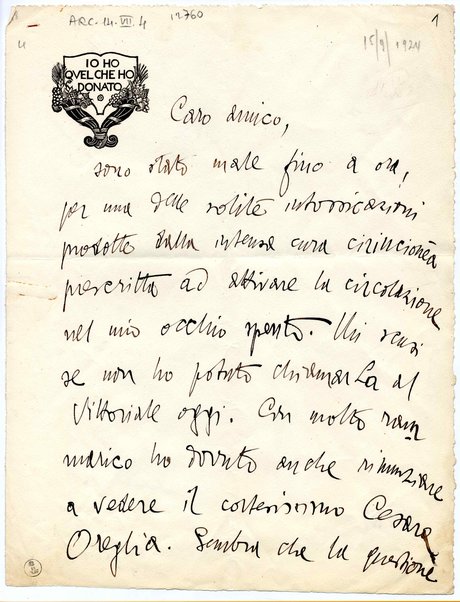 ARC. 14. VII. 4
12760
1
15/9/1924
IO HO
QVEL CHE HO
DONATO
Caro amico,
sono stato male fino a ora,
per una delle solite intossicazioni
prodotte dalla intensa cura
prescritta ad attivare la circolazione
nel mio occhio spento. Mi scusi
se non ho potuto chiamarLa al
Vittoriale oggi. Con molto ram
marico ho dovuto anche rinunziare
a vedere il cortesissimo Cesare
Oreglia. Sembra che la questione